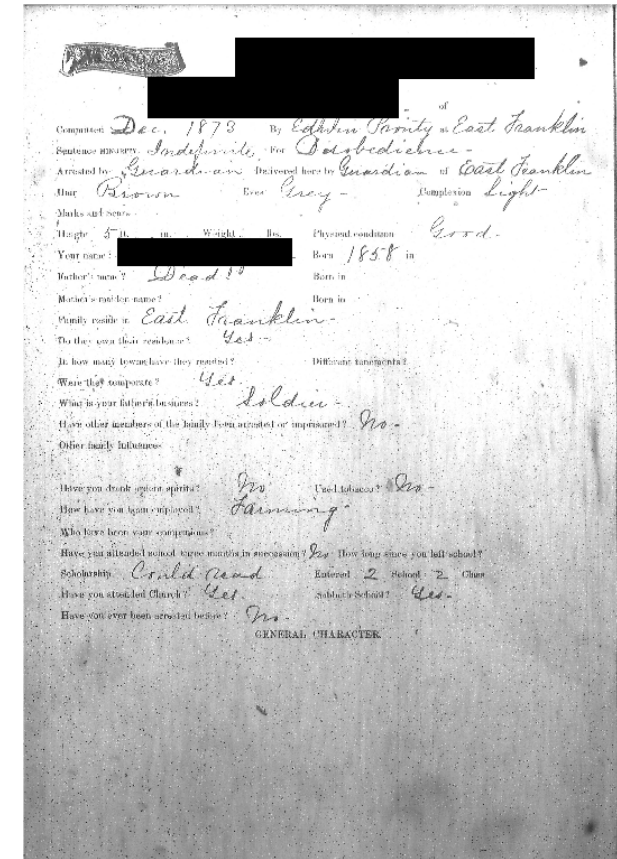 of
Committed Dec. 1873 By Edhlin Parity of East Franklin
Sentence MINORITY. Indefinite. For Disobedience -
Arrested by Guardian Delivered here by Guardian of East Franklin
Hair Brown Eyes Grey - Complexion Light -
Marks and Scars
Height 5 ft. in. Weight lbs. Physical condition Good -
Your name? Born 1858 in
Father's name? Dead Born in
Mother's maiden name? Born in
Family reside in East Franklin -
Do they own their residence? Yes -
In how many towns have they resided? Different tenements?
Were they temperate? Yes
What is your father's business? Soldier -
Have other members of the family been arrested or imprisoned? No -
Other family Influences
Have you drank ardent spirits? No Used tobacco? No -
How have you been employed? Farming -
Who have been your companions?
Have you attended school three months in succession? No How long since you left school?
Scholarship Could read Entered 2 School 2 Class
Have you attended Church? Yes. Sabbath School? Yes -
Have you ever been arrested before? No -
GENERAL CHARACTER.